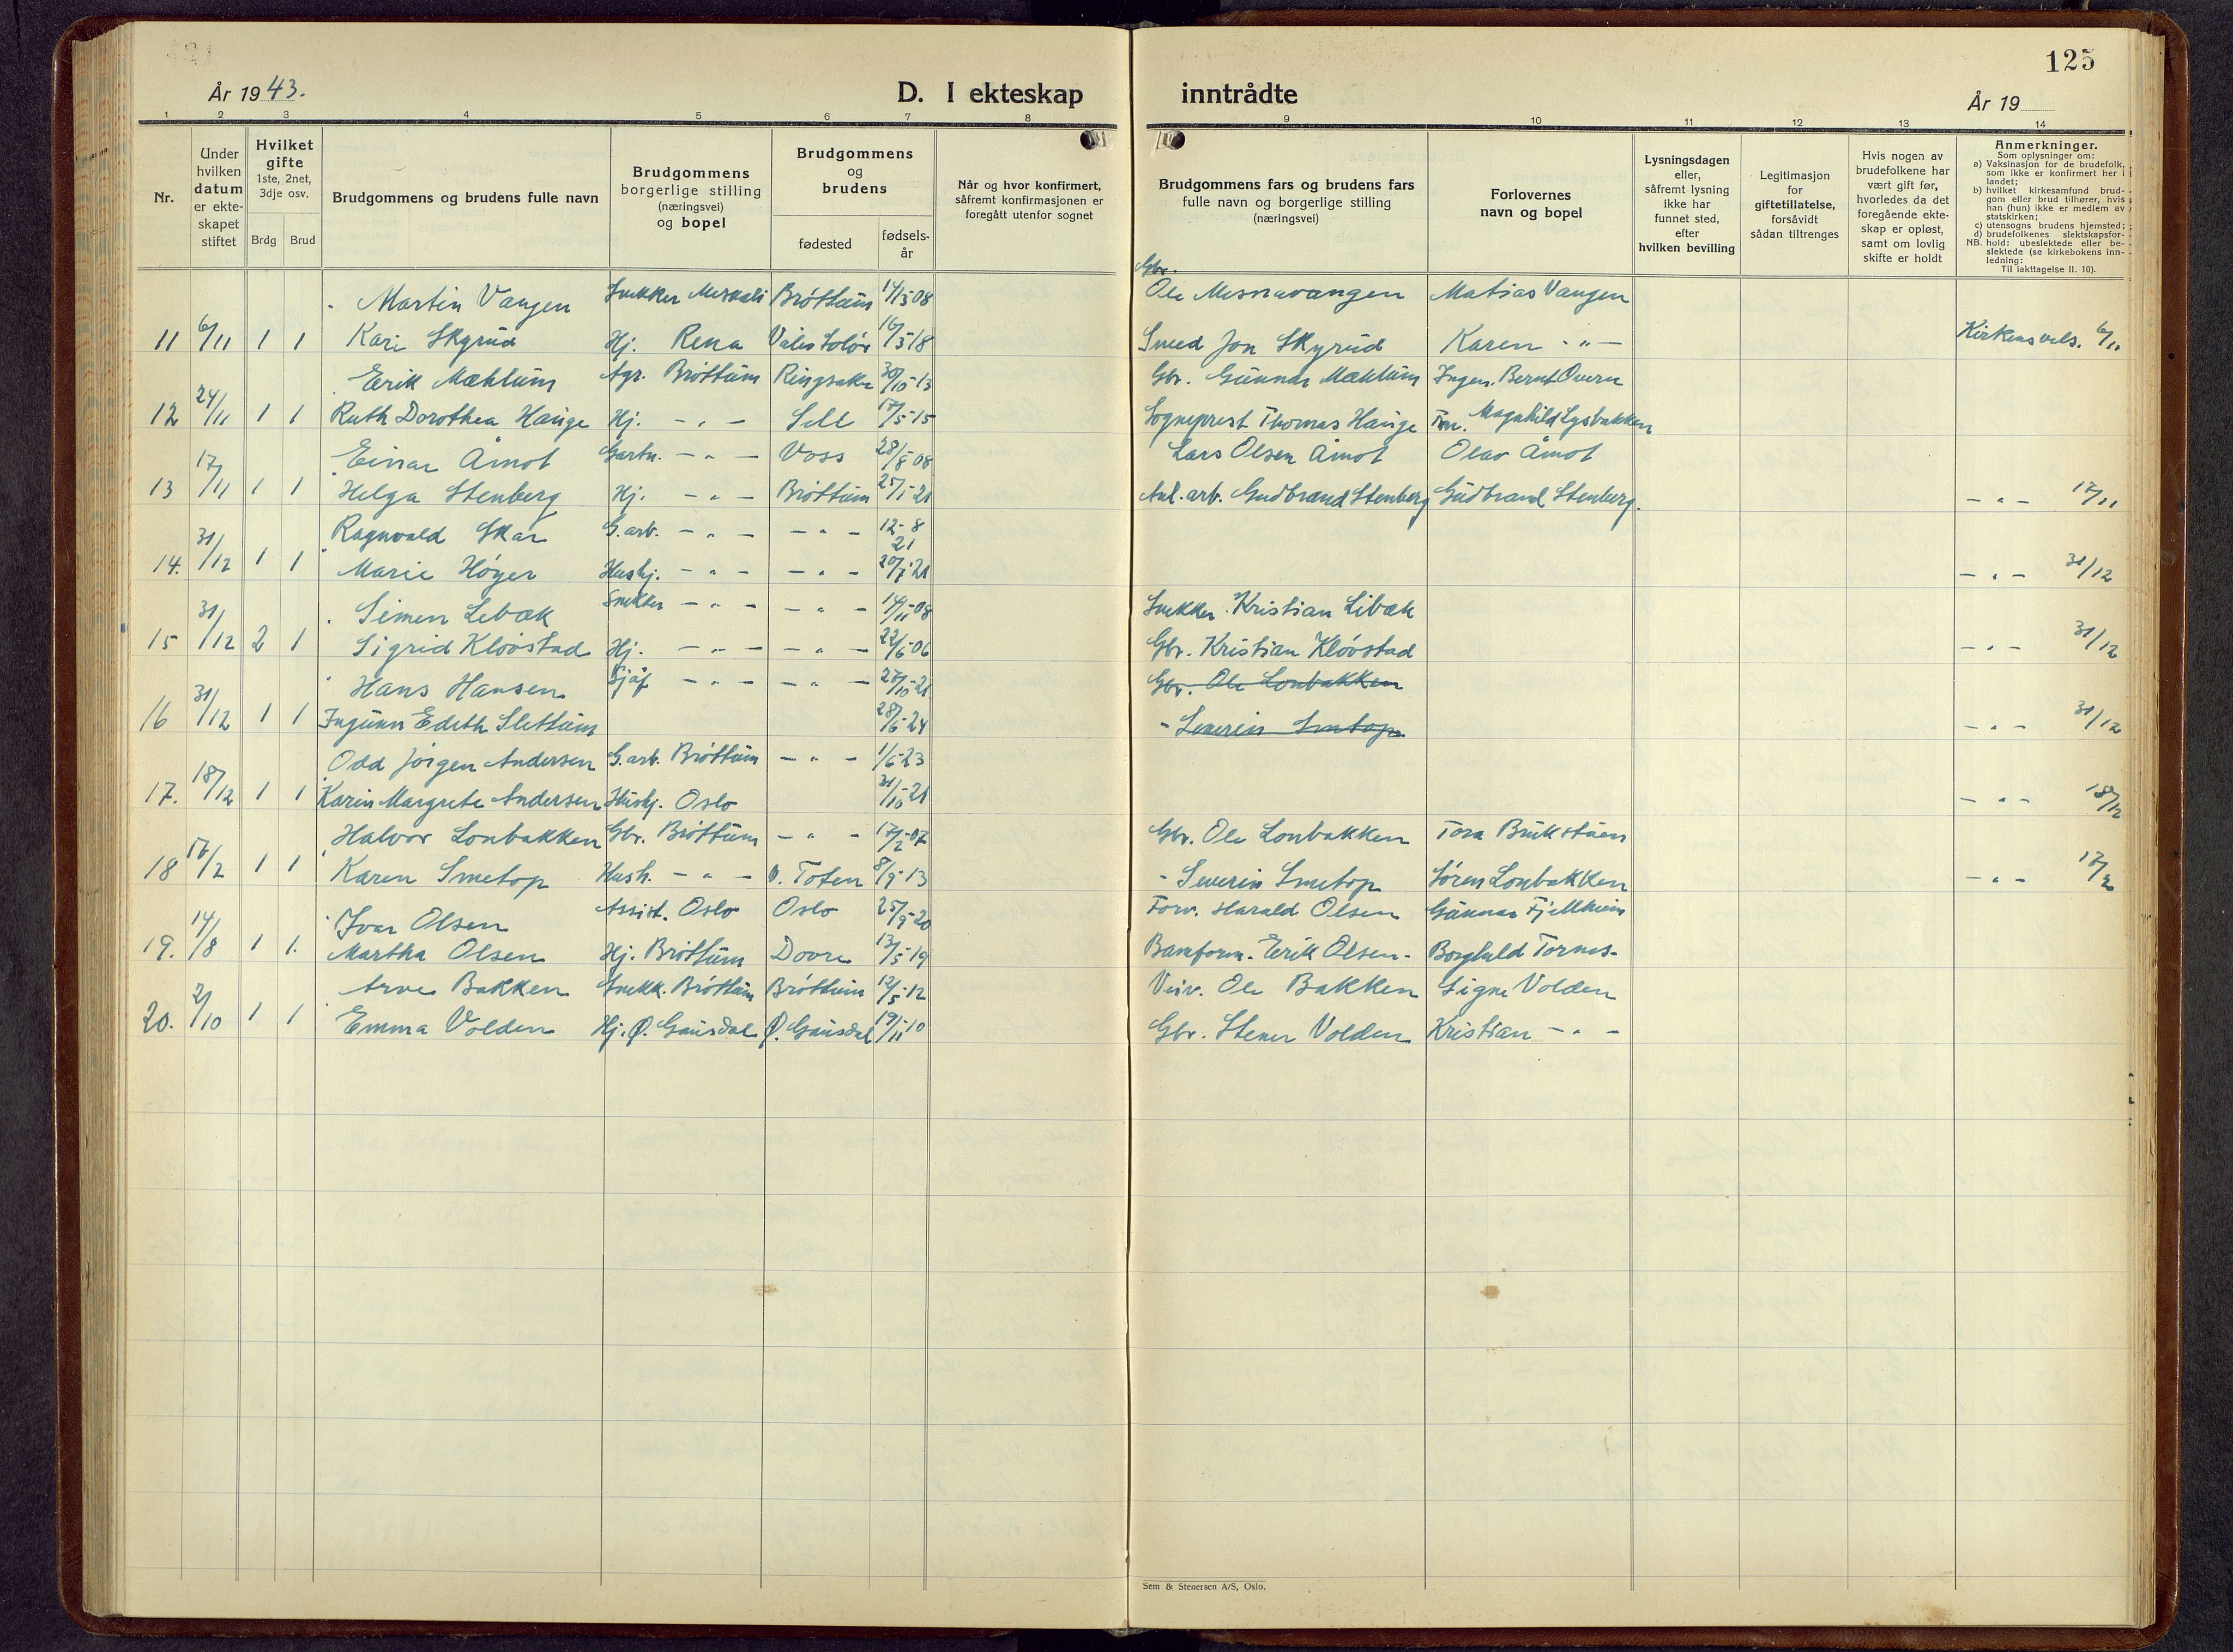 125
År 1943.
D. I ekteskap inntrådte
År 19
1 2 3 4 5 6 7 8 9 10 11 12 13 14
Nr.
Under hvilken datum er ekteskapet stiftet
Hvilket gifte 1ste, 2net, 3dje osv.
Brdg Brud
Brudgommens og brudens fulle navn
Brudgommens borgerlige stilling (næringsvei) og bopel
Brudgommens og brudens
fødested
fødselsår
Når og hvor konfirmert, såfremt konfirmasjonen er foregått utenfor sognet
Brudgommens fars og brudens fars fulle navn og borgerlige stilling (næringsvei)
Forlovernes navn og bopel
Lysningsdagen eller, såfremt lysning ikke har funnet sted, efter hvilken bevilling
Legitimasjon for giftetillatelse, forsåvidt sådan tiltrenges
Hvis nogen av brudefolkene har vært gift før, hvorledes da det foregående ekteskap er opløst, samt om lovlig skifte er holdt
Anmerkninger.
Som oplysninger om:
a) Vaksinasjon for de brudefolk, som ikke er konfirmert her i landet;
b) hvilket kirkesamfund brudgom eller brud tilhører, hvis han (hun) ikke er medlem av statskirken;
c) utensogns brudens hjemsted;
d) brudefolkenes slektskapsforhold: ubeslektede eller beslektede (se kirkebokens innledning:
NB.
Til iakttagelse II. 10).
Martin Vangen Snekker Mesnali Brøttum 14/3-08 Gbr. Ole Mesnavangen Matias Vangen
11 6/11 1 1 Kari Skyrud Hj. Rena Våler Solør 16/3-18 Smed Jon Skyrud Karen - " - Kirkens vels. 6/11
Erik Mæhlum Agr. Brøttum Ringsaker 30/10-13 Gbr. Gunnar Mæhlum Ingen. Bernt Overn
12 24/11 1 1 Ruth Dorothea Hauge Hj. - " - Sell 17/5-15 Sogneprest Thomas Hauge Frn. Magnhild Lysbakken
Einar Åmot Gartn. - " - Voss 28/8-08 Lars Olsen Åmot Olav Åmot
13 17/11 1 1 Helga Stenberg Hj. - " - Brøttum 25/1-21 Anl. arb. Gudbrand Stenberg Gudbrand Stenberg. - " - 17/11
Ragnvald Skar G.arb. - " - - " - 12-8 21
14. 31/12 1 1 Marie Høyer Hushj. - " - - " - 20/7-21 - " - 31/12
Simen Lebæk Snekker - " - - " - 14/11-08 Snekker Kristian Libæk
15 31/12 2 1 Sigrid Kløvstad Hj. - " - - " - 22/6-06 Gbr. Kristian Kløvstad - " - 31/12
Hans Hansen Sjåf - " - - " - 27/10-21 Gbr. Ole Lonbakken
16 31/12 1 1 Ingunn Edith Slettum 28/6-24 - Severin Smetop - " - 31/12
Odd Jørgen Andersen G.arb. Brøttum - " - 1/6-23
17. 18/12 1 1 Karin Margrete Andersen Hushj. Oslo 31/10-21 - " - 18/12
Halvor Lonbakken Gbr. Brøttum - " - 17/2-07 Gbr. Ole Lonbakken Tora Brukstuen
18 17/2 1 1 Karen Smetop Hush. - " - V. Toten 8/9-13 - Severin Smetop Søren Lonbakken - " - 17/2
Ivar Olsen Assist. Oslo Oslo 25/9-20 Forv. Harald Olsen Gunnar Fjellheim
19. 14/8 1 1. Martha Olsen Hj. Brøttum Dovre 13/5-19 Banform. Erik Olsen - Borghild Tornes -
Arve Bakken Snekk. Brøttum Brøttum 12/5-12 Veiv. Ole Bakken Signe Volden
20. 2/10 1 1 Emma Volden Hj. Ø. Gausdal Ø. Gausdal 19/11-10 Gbr. Stener Volden Kristian - " -
Sem & Stenersen A/S, Oslo.